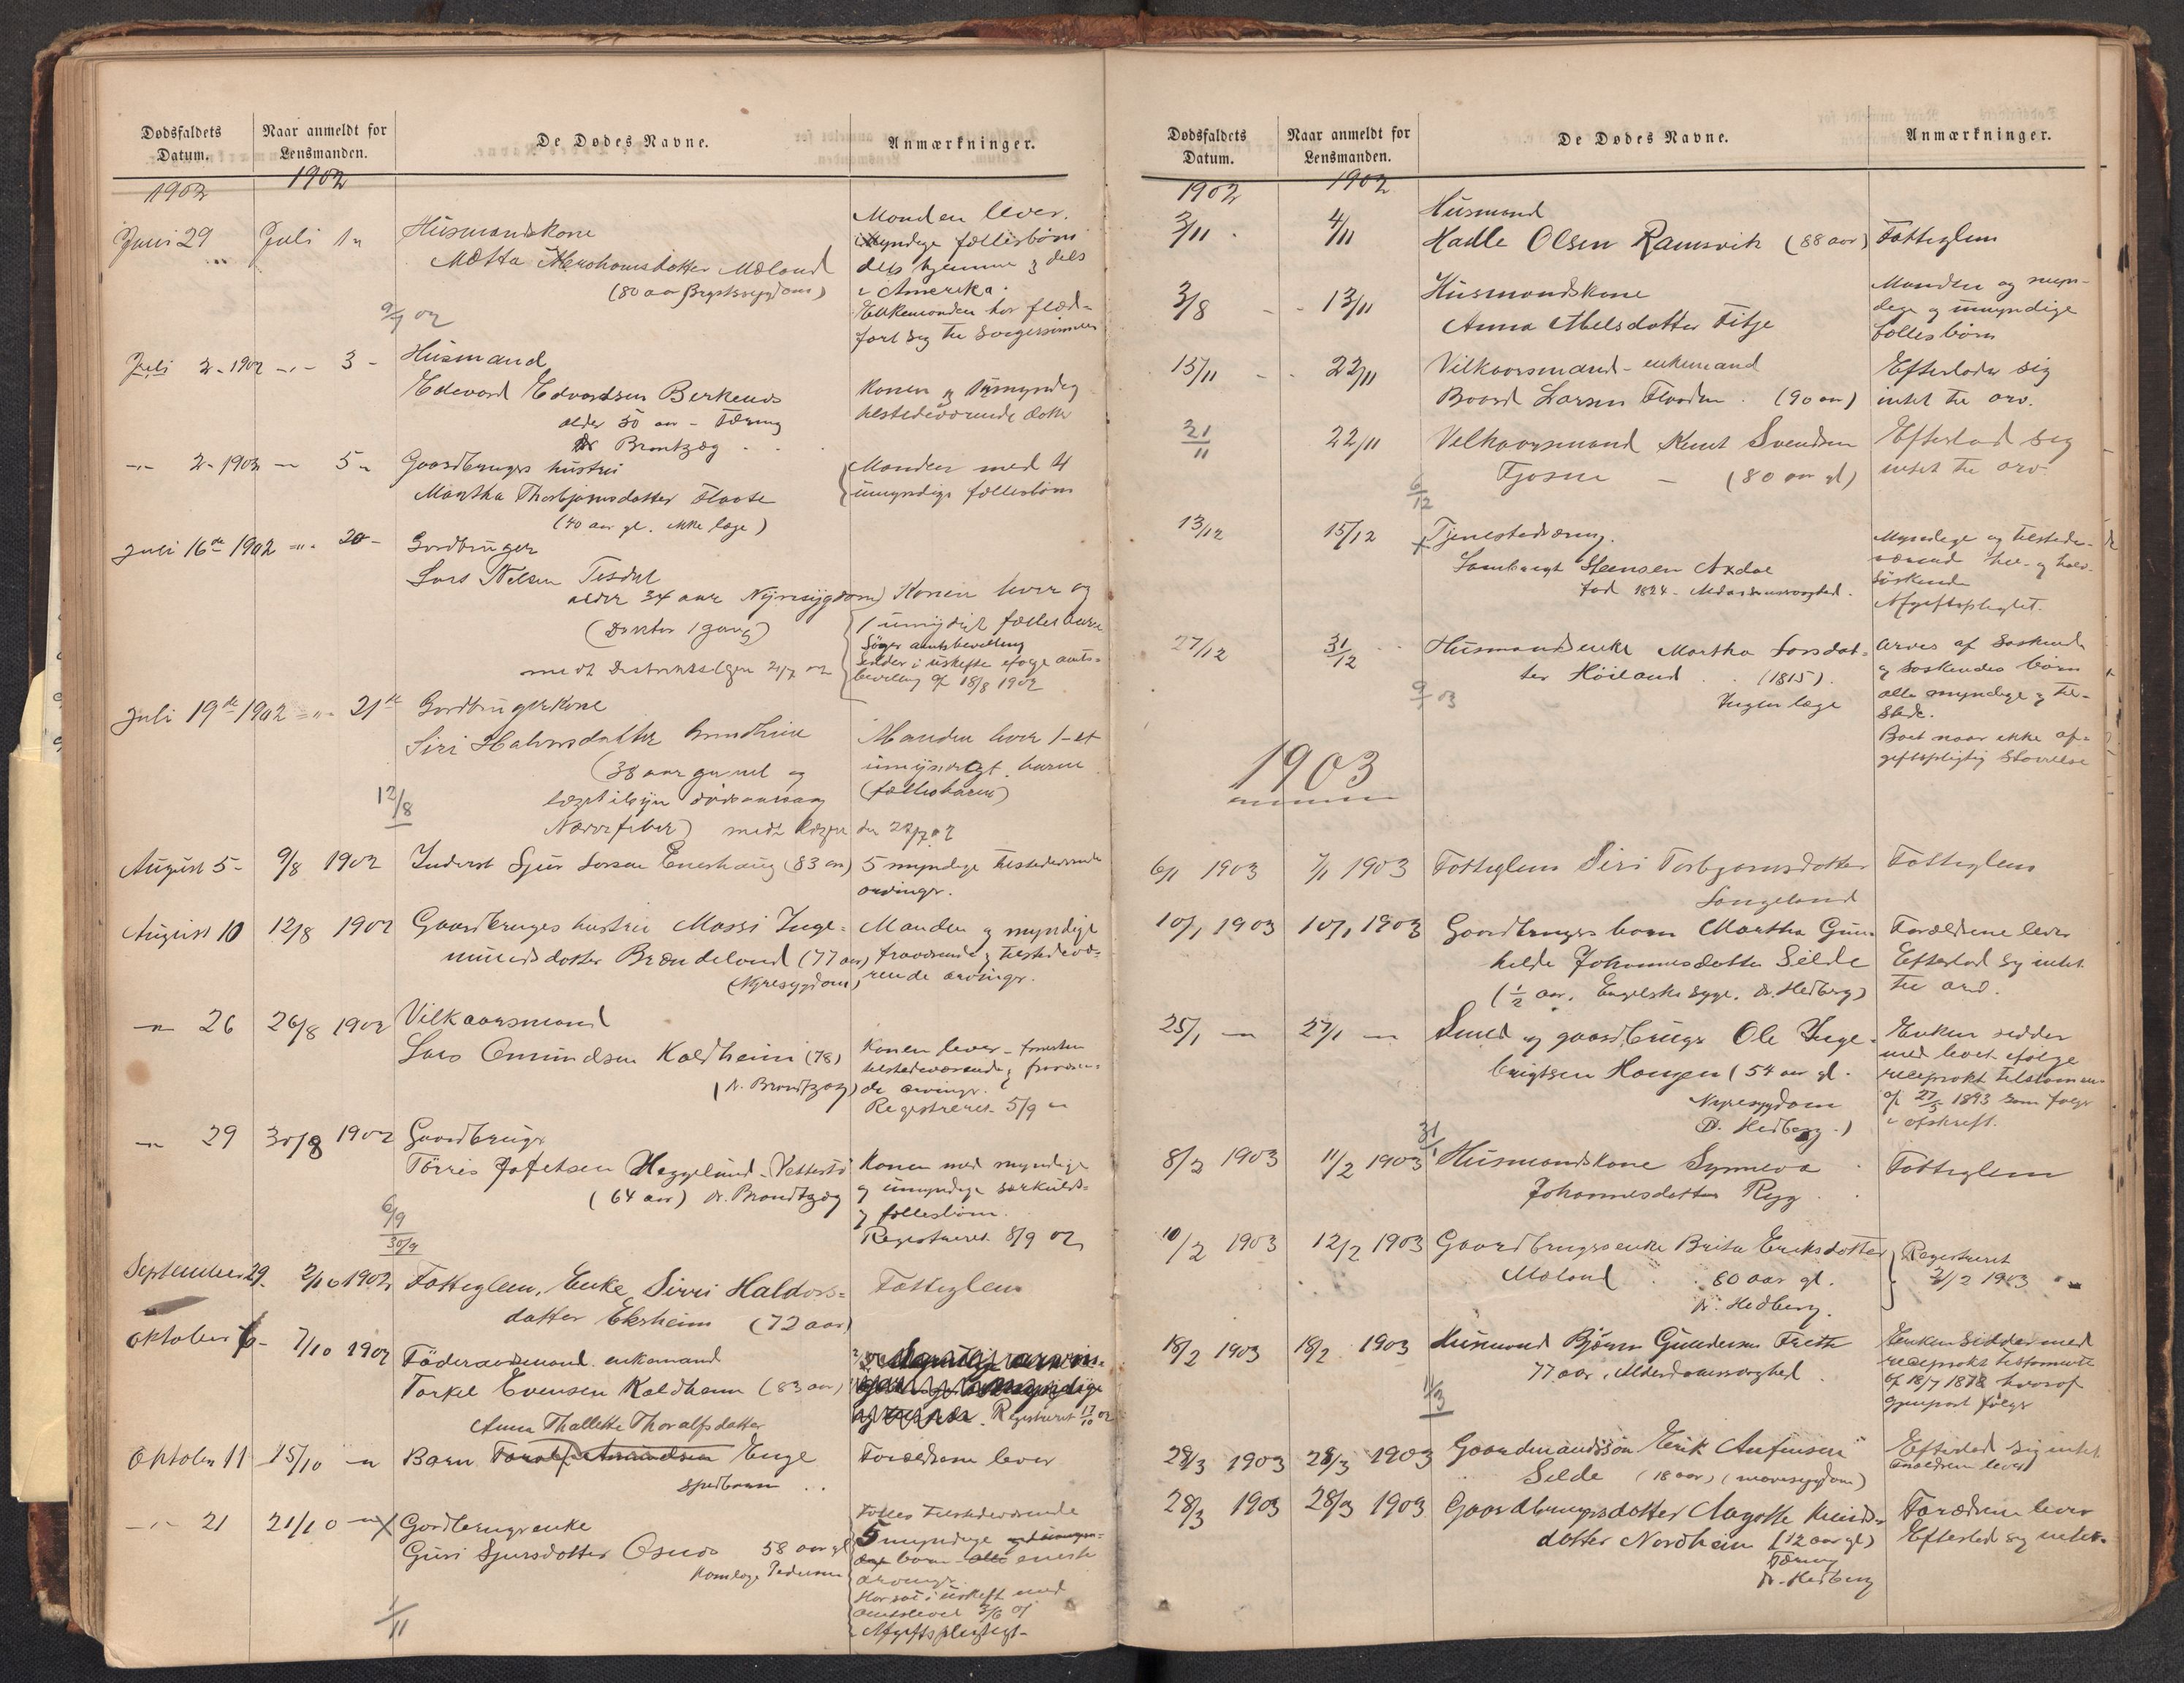 Dødsfaldets Datum. Naar anmeldt for Lensmanden. De Dødes Navne. Anmærkninger.
1902 1902
Juni 29 Juli 1 Husmandskone Manden lever.
Mætta Abrahamsdotter Mæland umyndige fællesbørn
(80 aar Brystsygdom) dels hjemme & dels
i Amerika.
9/7 02 Enkemanden har flød-
ført seg til svigersønnen
Juli 2 - 1902 -"- 3 - Husmand
Edvard Edvardsen Berkenes Konen og umyndig
alder 50 aar - Tæring tilstedeværende
Dr Brantzæg
-"- 2 - 1902 - 5 - Gaardbrugers hustru Manden med 4
Martha Thorbjørnsdotter Flaate umyndige fællesbørn
(40 aar gl. ikke læge)
Juli 16de 1902 -"- 20 - Gardbruger
Lars Nelsen Tesdal
alder 34 aar Nyresygdom) Konen lever og
(Doktor 1 gang) 1 umyndigt fællesbarn
Søger amtsbevilling
medt Distriktslægen 21/7 02 Sidder i uskifte efølge amts-
bevilling af 18/8 1902
Juli 19de 1902 -"- 21de Gardbrugerkone
Siri Halvorsdatter Manden lever 1 - et
(38 aar gammel og umyndigt barn
12/8 lægetilsyn dødsaarsag (fællesbarn)
Nervefeber) medt lægen den 22/7 02
August 5 - 9/8 1902 Inderst Sjur Larsen Eneshaug (83 aar) 5 myndige tilstedeværende
arvinger.
August 10 12/8 1902 Gaardbrugers hustru Massi Inge- Manden og myndige
mundsdotter Brændeland (77 aar) fraværende & tilstedevæ-
(Nyresygdom) rende arvinger.
-"- 26 26/8 1902 Vilkaarsmand
Lars Omundsen Kaldheim (78) Konen lever - forresten
tilstedeværende & fraværen-
(Dr. Brandtzæg) de arvinger.
Registreret 5/9 -
-"- 29 30/8 1902 Gaardbruger
Tørris Jofetsen Heggelund - Vettestø Konen med myndige
(64 aar) Dr. Brandtzæg og umyndige særkulds-
6/9 & fællesbørn.
30/9 Registreret 8/9 02
September 29. 2/10 1902 Fattiglem, Enke Sirri Haldors- Fattiglem
datter Ekrheim (72 aar)
Oktober 6 - 7/10 1902 Føderaadsmand enkemand
Torkel Evensen Kaldheim (83 aar) Registreret 17/10 02
Anna Thallette Thoralfsdatter
Oktober 11 15/10 -"- Barn Toralf Amundsen Enge Forældrene lever
spedbarn
-"- 21 21/10 -"- X Gardbrugerenke Fælles tilstedeværende
Guri Sjursdotter Osnes 58 aar gl 5 myndige og umyn-
Komlæge Pedersen dige børn alle eneste
arvinger.
Har sat i uskift med
amtsbevil 3/6 01
1/11 Afgiftspligtigt -

Dødsfaldets Datum. Naar anmeldt for Lensmanden. De Dødes Navne. Anmærkninger.
1902 1902
3/11 4/11 Husmand
Halle Olsen Ramsvik (88 aar) Fattiglem
3/8 - - 13/11 Husmandskone Manden og myn-
Anna Abelsdotter Fitje dige og umyndige
fællesbørn
15/11 - - 22/11 Vilkaarsmand - enkemand Efterlader sig
Baard Larsen Flaaden (90 aar) intet til arv.
21/11 22/11 Vilkaarsmand Knut Svendsen Efterlod seg
6/12 Fjosne - (80 aar gl) intet til arv
13/12 15/12 Tjenestedræng. Myndige og tilstede-
Lambregt Steensen Axdal værende hel- og halv-
fød 1824 - Alderdomssvaghed. søskende
Afgiftspligtigt.
27/12 31/12 Husmandsenke Martha Larsdat- Arves af søskende
ter Höiland (1815). & søskendes børn
9/1 03 Ingen læge alle myndige & til-
stede.
Boet naar ikke af-
giftspligtig størrelse
1903
6/1 1903 7/1 1903 Fattiglem Siri Torbjørnsdotter Fattiglem
Langeland
10/1 1903 10/1 1903 Gaardbrugers barn Martha Gun- Forældrene lever
hilde Johannesdotter Silde Efterlod sig intet
(1/2 aar. Engelske syge. Dr. Hedberg) til arv.
25/1 - 27/1 - Smed og gaardbruger Ole Inge- Enken sidder
brigtsen Haugen (54 aar gl. med boet efølge
Nyresygdom reciprokt testamente
Dr. Hedberg.) af 27/5 1893 som følger
31/1 i afskrift.
8/2 1903 11/2 1903 Husmandskone Synneva Fattiglem
Johannesdotter Ryg
10/2 1903 12/2 1903 Gaardbrugersenke Brita Eriksdotter Registreret
Moland 80 aar gl. 21/2 1903
Dr. Hedberg.
18/2 1903 18/2 1903 Husmand Bjørn Gundersen Frette Enken sidder med
77 aar. Alderdomssvaghed reciprokt testamente
1/3 af 18/7 1878 hvoraf
gjenpart følger
28/3 1903 28/3 1903 Gaardmandssøn Erik Anfinsen Efterlod sig intet
Silde (18 aar) (mavesygdom) Forældren lever
28/3 1903 28/3 1903 Gaardbrugersdotter Aagotte Knuds- Forældrene lever
dotter Nordheim (12 aar gl) Efterlod sig intet.
Tæring
Dr. Hedberg